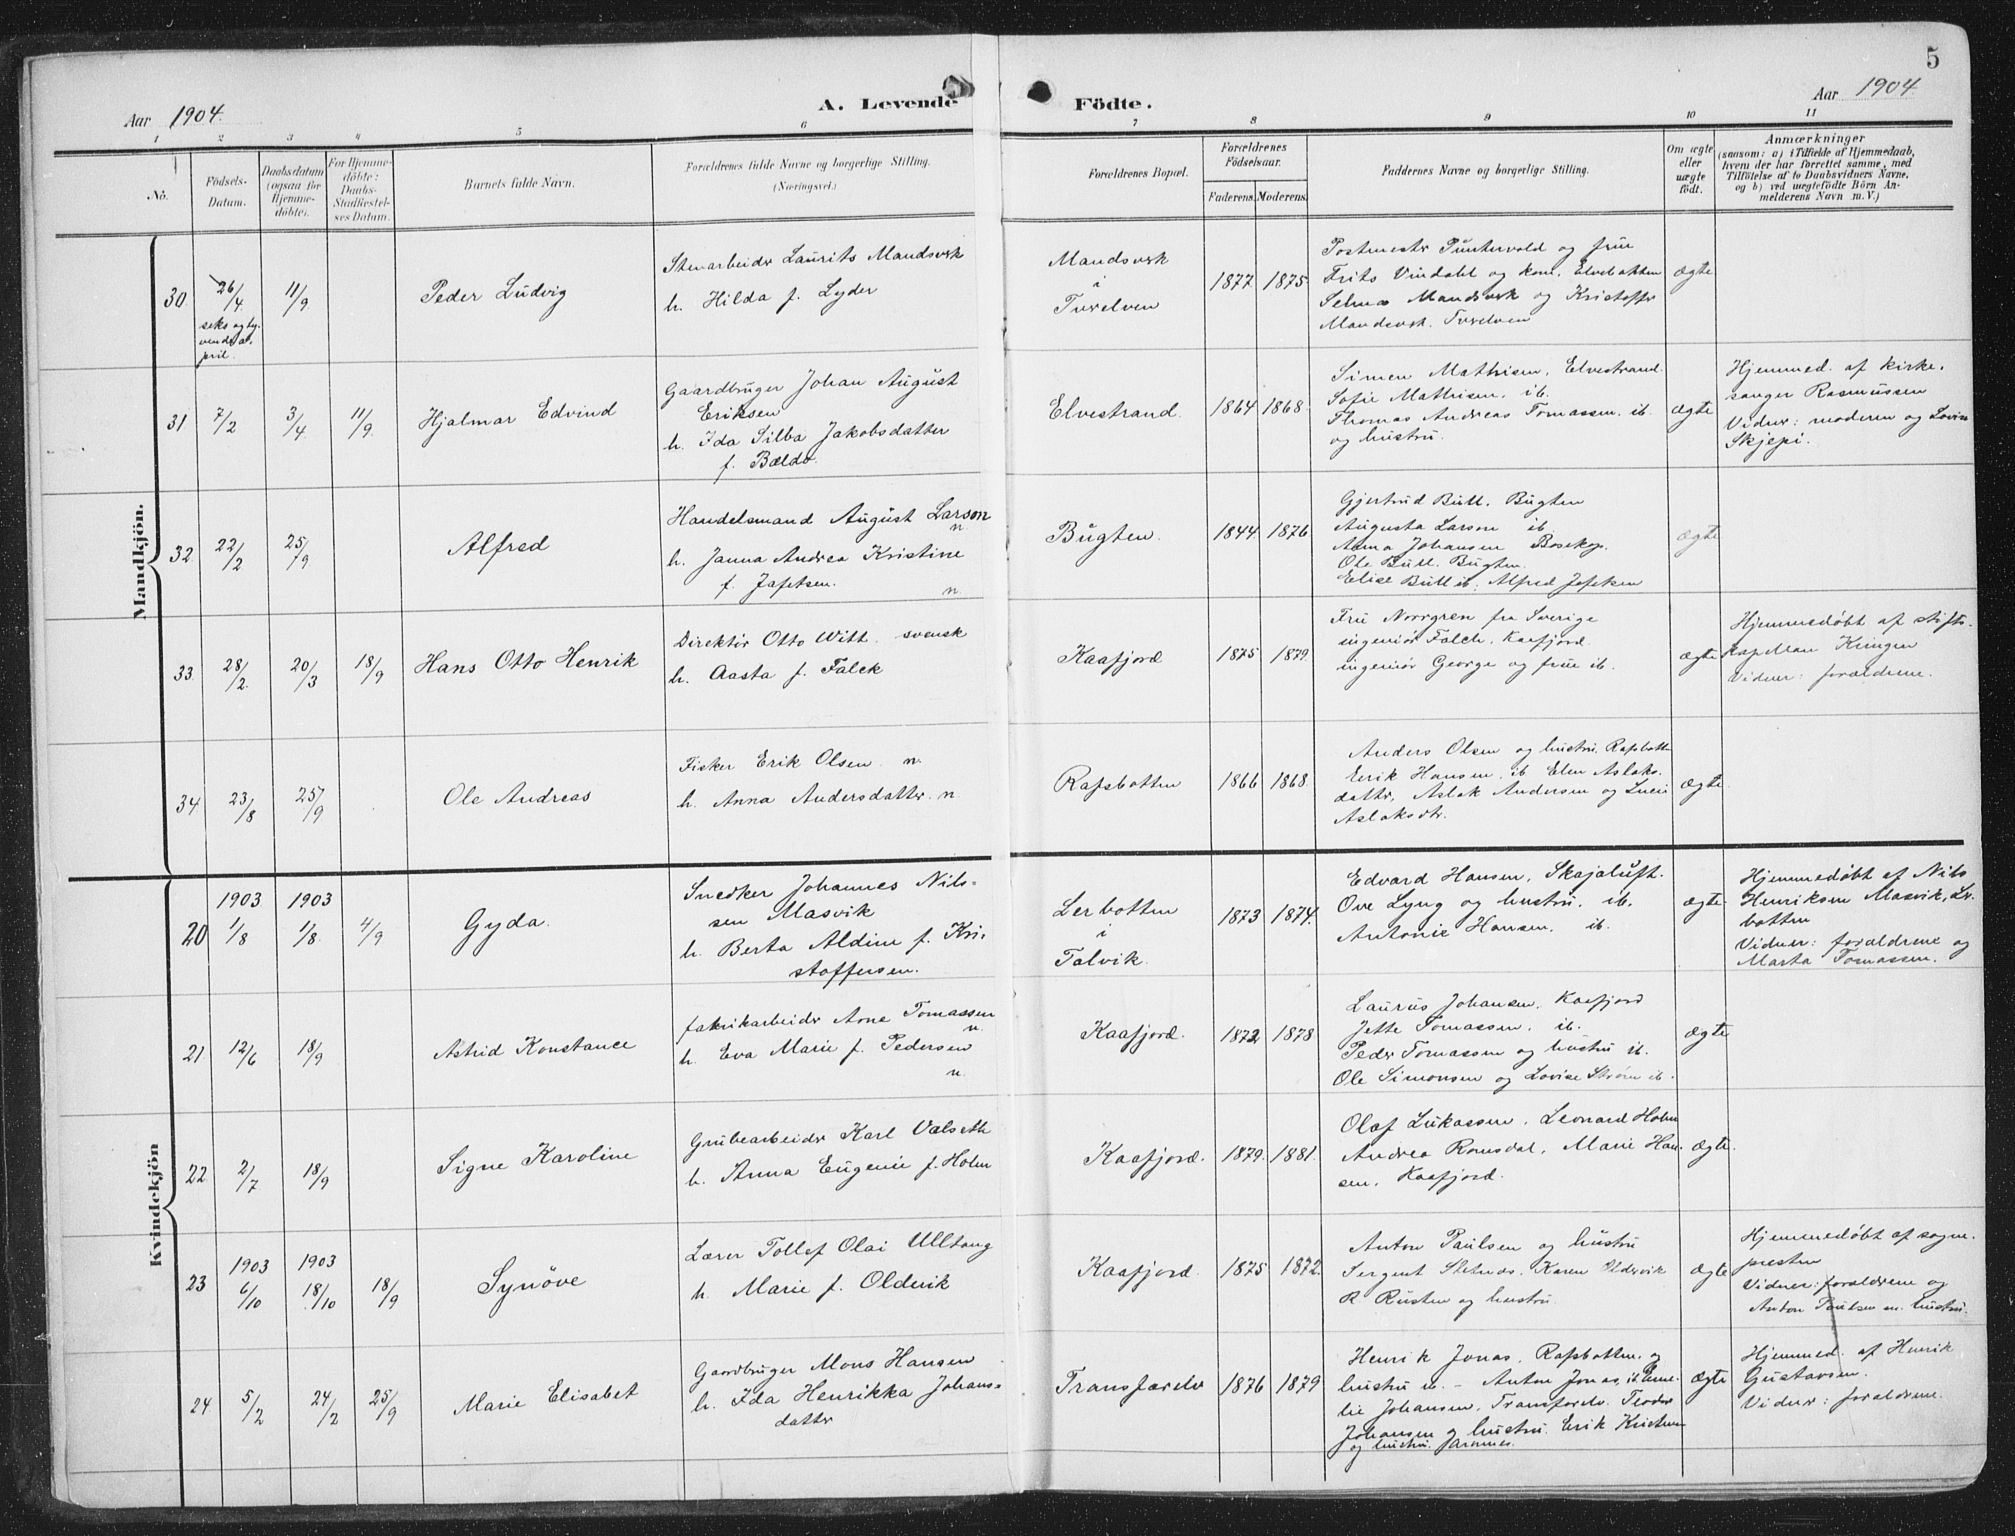 5
Aar 1904.
A. Levende Födte.
Aar 1904
1 2 3 4 5 6 7 8 9 10 11
No.
Födsels-Datum.
Daabsdatum (ogsaa for Hjemmedöbte).
For Hjemmedöbte: Daabs-Stadfæstelses Datum.
Barnets fulde Navn.
Forældrenes fulde Navne og borgerlige Stilling.
(Næringsvei.)
Forældrenes Bopæl.
Forældrenes Födselsaar.
Faderens. Moderens.
Faddernes Navne og borgerlige Stilling.
Om ægte eller uægte födt.
Anmærkninger
(saasom: a) i Tilfælde af Hjemmedaab, hvem der har forrettet samme, med Tilföielse af to Daabsvidners Navne, og b) ved uægtefödte Börn Anmelderens Navn m. V.)
Mandkjön.
30. 26/4. 11/9 Peder Ludvig
seks og tyvende april.
Stenarbeider Laurits Mandsverk
h. Hilda f. Lyder
Mandsverk
i
Tverelven
1877 1875
Postmester Puntervold og frue
Frits Vindahl og kone, Elvebakken
Selma Mandsverk og Kristoffer
Mandsverk. Tverelven
ægte
31 7/2 3/4 11/9. Hjalmar Edvind
Gaardbruger Johan August
Eriksen
h. Ida Silba Jakobsdatter
f. Bældo.
Elvestrand. 1864 1868
Simen Mathisen, Elvestrand
Sofie Mathisen, ib.
Thomas Andreas Tomassen, ib.
og hustru.
ægte
Hjemmed. af kirke-
sanger Rasmussen
Vidner: moderen og Lovise
Skjepi.
32. 22/2 25/9 Alfred
Handelsmand August Larson
n
h. Janna Andrea Kristine
f. Jafetsen. n.
Bugten. 1844 1876
Gjertrud Bull. Bugten
Augusta Larson ib.
Anna Johansen Bosekop.
Ole Bull. Bugten.
Elise Bull ib. Alfred Jafetsen
ægte
33. 28/2. 20/3 18/9 Hans Otto Henrik
Direktör Otto Witt. svensk
h. Aasta f. Falck
Kaafjord 1875 1879
Fru Norrgren fra Sverige
ingeniör Falck, Kaafjord.
ingeniör George og frue ib.
ægte
Hjemmedøbt af stifts-
kapellan Kringen
Vidner: forældrene.
34. 23/8 25/9 Ole Andreas
Fisker Erik Olsen n.
h. Anna Andersdatter. n
Rafsbotten 1866 1868
Anders Olsen og hustru, Rafsbotten
Erik Hansen, ib Elen Aslaks-
datter, Aslak Andersen og Lucie
Aslaksdtr.
ægte
Kvindekjön
20 1903 1/8 1903 1/8. 4/9 Gyda.
Snedker Johannes Nils-
sen Masvik
h. Berta Aldine f. Kri-
stoffersen.
Lerbotten
i
Talvik.
1873 1874.
Edvard Hansen, Skajaluft.
Ove Lyng og hustru. ib.
Antonie Hansen, ib.
ægte
Hjemmedøbt af Nils
Henriksen Masvik, Ler-
botten
Vidner: forældrene og
Marta Tomassen.
21 12/6 18/9 Astrid Konstance
fabrikarbeider Arne Tomassen
n.
h. Eva Marie f. Pedersen
n.
Kaafjord. 1872 1878
Laurus Johansen, Kaafjord
Jette Tomassen, ib.
Peder Tomassen og hustru ib.
Ole Simonsen og Lovise Strøm ib.
ægte
22 2/7. 18/9 Signe Karoline
Grubearbeider Karl Valseth
h. Anna Eugenie f. Holm
Kaafjord. 1879. 1881.
Olaf Lukassen, Leonard Holm
Andrea Romsdal, Marie Han-
sen, Kaafjord.
ægte.
23 1903 6/10 1903 18/10 18/9 Synöve
Lærer Tollef Olai Ulltang
h. Marie f. Olderik
Kaafjord. 1875 1872.
Anton Paulsen og hustru
Sergent Stefnds. Karen Oldervik
R Rusten og hustru.
ægte
Hjemmedøbt af sogne-
presten
Vidner: forældrene og
Anton Paulsen m. hustru.
24 5/2 24/2 25/9 Marie Elisabet
Gaardbruger Mons Hansen
h. Ida Henrikka Johans-
datter
Transfarelv 1876 1879
Henrik Jonas, Rafsbotten, og
hustru ib. - Anton Jonas, ib. Ame-
lie Johansen, Transfarelv. Teodor
Johansen og hustru. Erik Kristensen
og hustru.
ægte
Hjemmed. af Henrik
Gustavsen.
Vidner: forældrene.